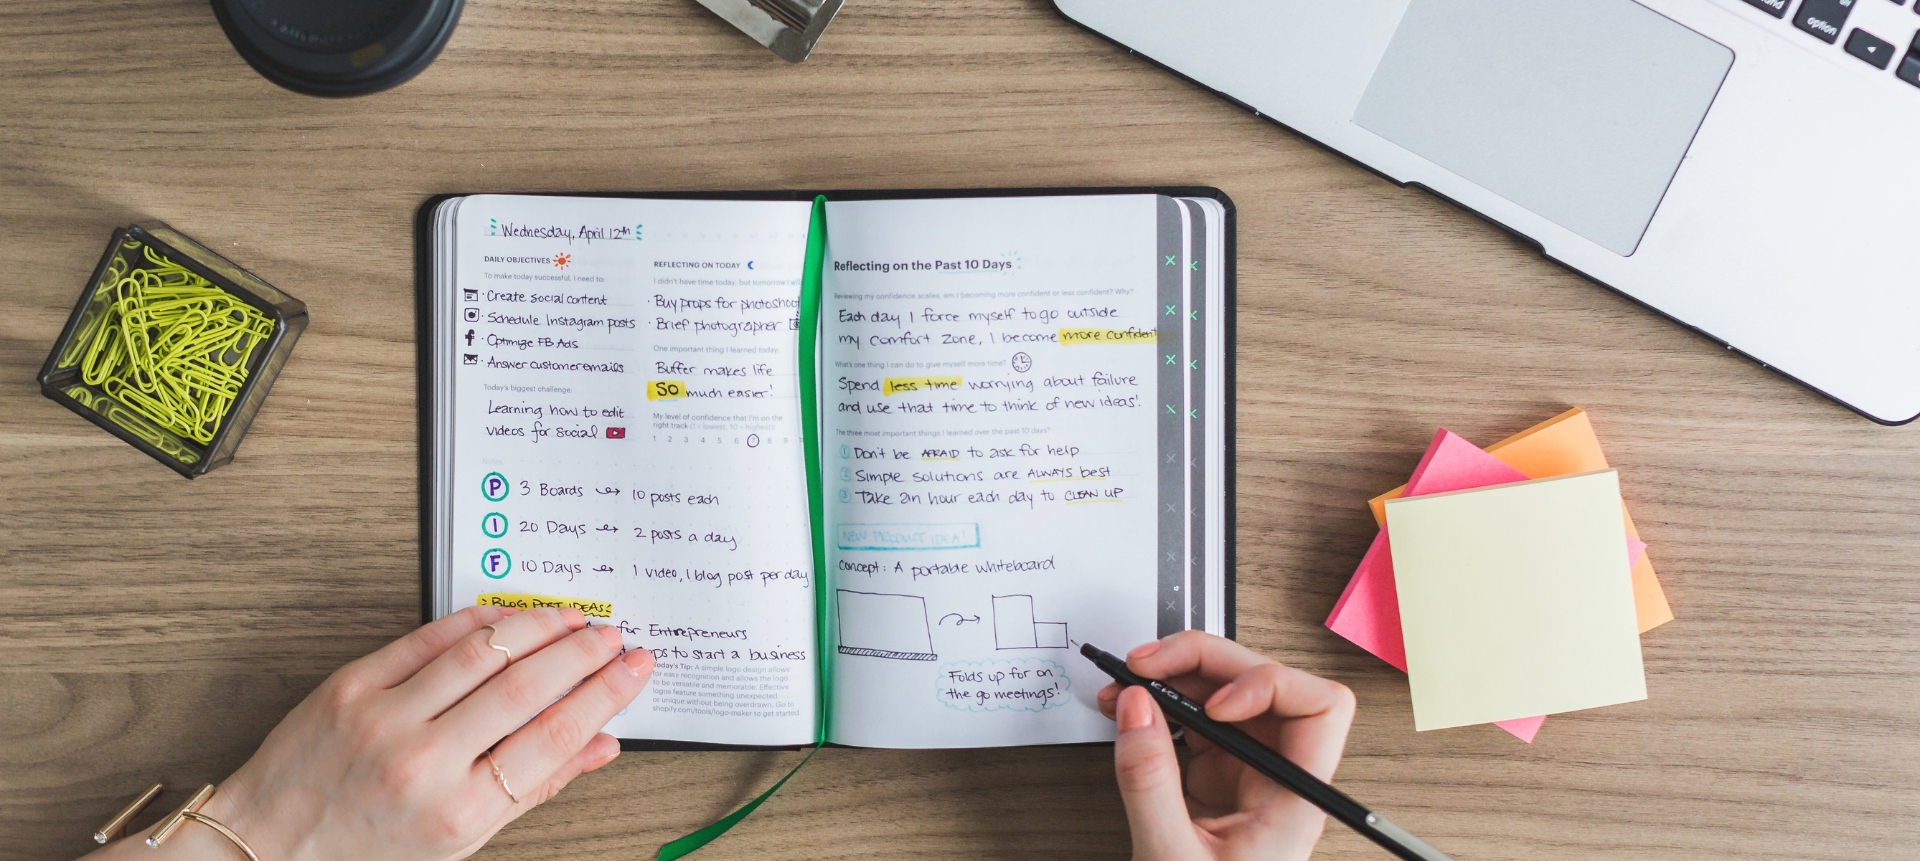 Wednesday, April 12th
DAILY OBJECTIVES
To make today successful, I need to:
· Create social content
· Schedule Instagram posts
f · Optimize FB Ads
· Answer customer emails
Today's biggest challenge:
Learning how to edit
videos for social
REFLECTING ON TODAY
I didn't have time today, but tomorrow I will:
· Buy props for photoshoot
· Brief photographer
One important thing I learned today:
Buffer makes life
SO much easier!
My level of confidence that I'm on the
right track (1 = lowest, 10 = highest):
1 2 3 4 5 6 7 8 9
Notes
P 3 Boards → 10 posts each
I 20 Days → 2 posts a day
F 10 Days → 1 video, 1 blog post per day
BLOG POST IDEAS
for Entrepreneurs
to start a business
Today's Tip: A simple logo design allows
for easy recognition and allows the logo
to be versatile and memorable. Effective
logos feature something unexpected
or unique without being overdrawn. Go to
shopify.com/tools/logo-maker to get started.
Reflecting on the Past 10 Days
Reviewing my confidence scales, am I becoming more confident or less confident? Why?
Each day I force myself to go outside
my comfort zone, I become more confident
What's one thing I can do to give myself more time?
Spend less time worrying about failure
and use that time to think of new ideas!
The three most important things I learned over the past 10 days?
1 Don't be AFRAID to ask for help
2 Simple solutions are ALWAYS best
3 Take an hour each day to CLEAN UP
NEW PRODUCT IDEA!
Concept: A portable whiteboard
Folds up for on
the go meetings!
option